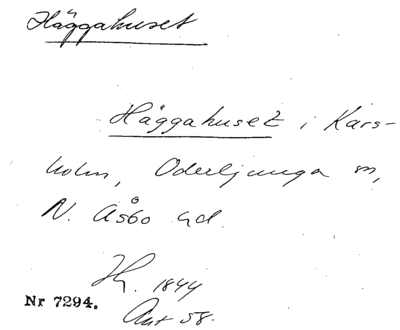 Häggahuset
Häggahuset i Kars-
holm, Oderljunga sn,
N. Åsbo hd.
Hf. 1844
Nr 7294.
Ant 58.